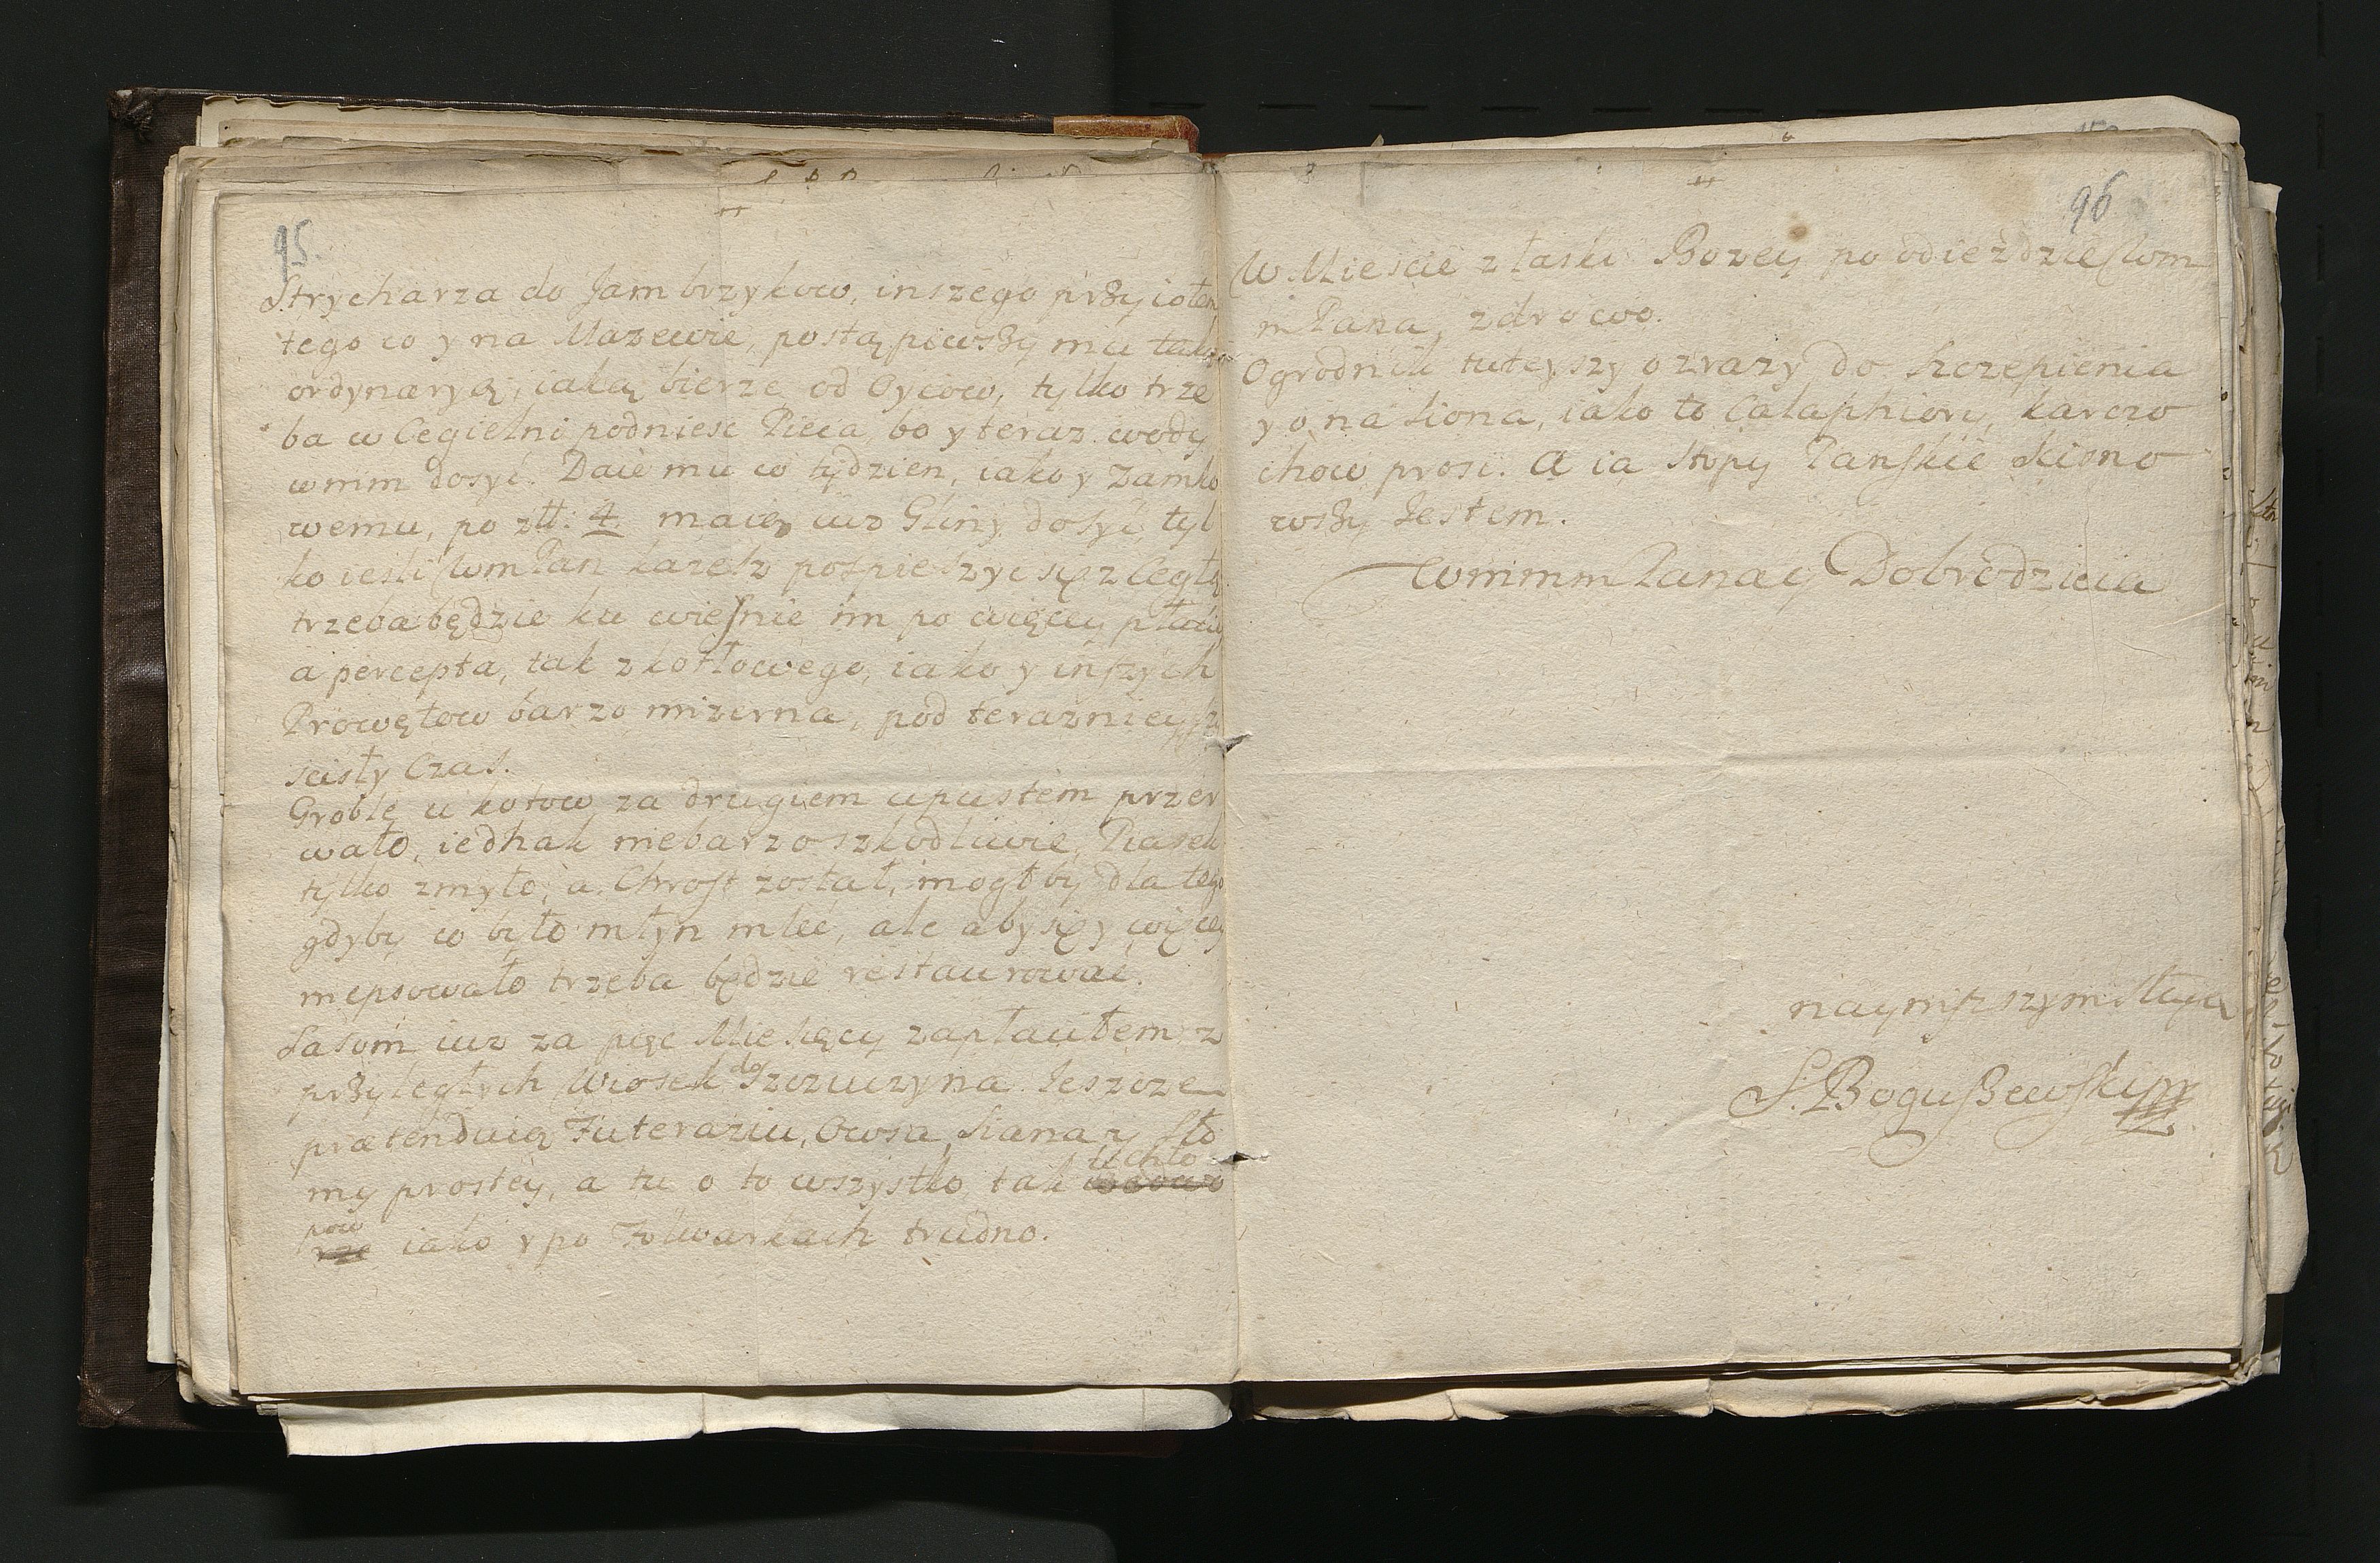 95.
Strycharza do Jambrzykow, inszego przyiołem
tego co y na Mazewie, postąpiwszy mu taką
ordynaryą, iaką bierze od Oycow, tylko trze
ba w Cegielni podniesc Pieca, bo y teraz wody
w nim dosyć. Daie mu co tydzien, iako y Zamko
wemu, po złł: 4 maią iuz Gliny dosyć, tyl
ko iesli Wm Pan kazesz z Cegłą
trzeba będzie ku wiesnie im po więcey płacić
a percepta, tak z kotłowego, iako y inszych
Prowętow barzo mizerna, pod teraznieyszy
scisły Czas.
Groblę u kotow za drugiem upustem przer
wało, iednak niebarzo szkodliwie, Piasek
tylko zmyło, a Chrost został, mogłby dla tego
gdyby co było młyn mleć, ale aby się y więcey
niepsowało trzeba będzie restaurować.
Sasom iuz za pięc Miesięcy zapłaciłem, z
przyległych Wiosek do Szczuczyna. Jeszcze
prætenduią Futeraziu, Owsa, Siana y Sło
my prostey, a tu o to wszystko, tak u chło
pow iako y po Folwarkach trudno.
96
W Miescie z łaski Bozey po odieździe Wm
m Pana, zdrowo.
Ogrodnik tuteyszy o zrazy do szczepienia
y o nasiona, iako to Calaphiory, karczo
chow prosi. A ia stopy Panskie scisno
wszy Jestem.
Wmmm Pana y Dobrodzieia
naynisszym sługą
S. Boguszewski mp